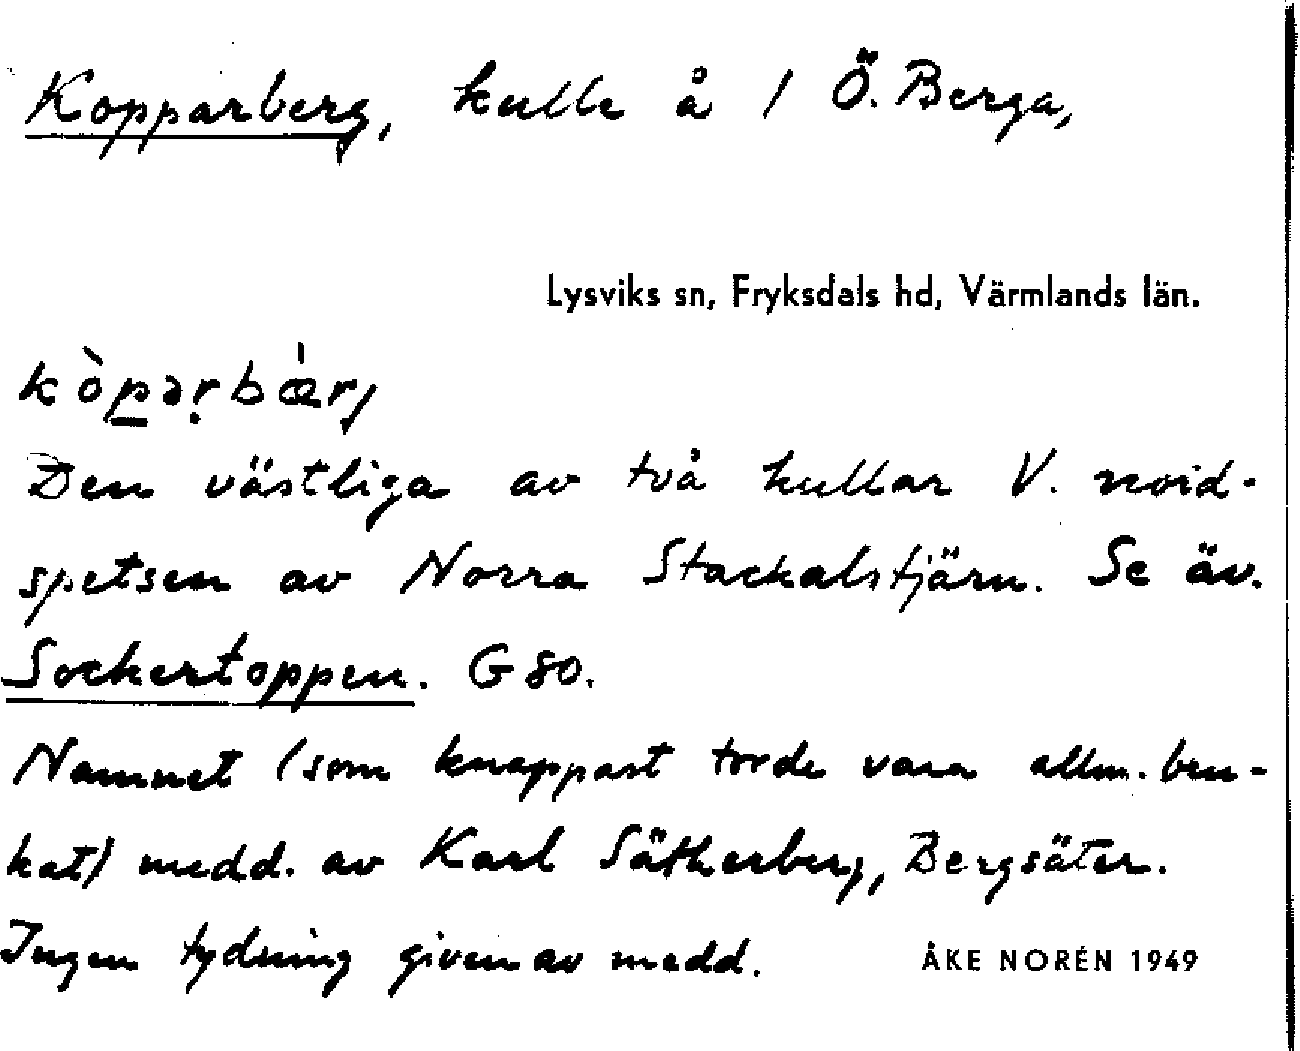 Kopparberg, kulle å 1 Ö. Berga,
Lysviks sn, Fryksdals hd, Värmlands län.
kòpərbǽrj
Den västliga av två kullar V. nord-
spetsen av Norra Stackalstjärn. Se äv.
Sockertoppen. G 80.
Namnet (som knappast torde vara allm. bru-
kat) medd. av Karl Sätherberg, Bergsäter.
Ingen tydning given av medd.
ÅKE NORÉN 1949